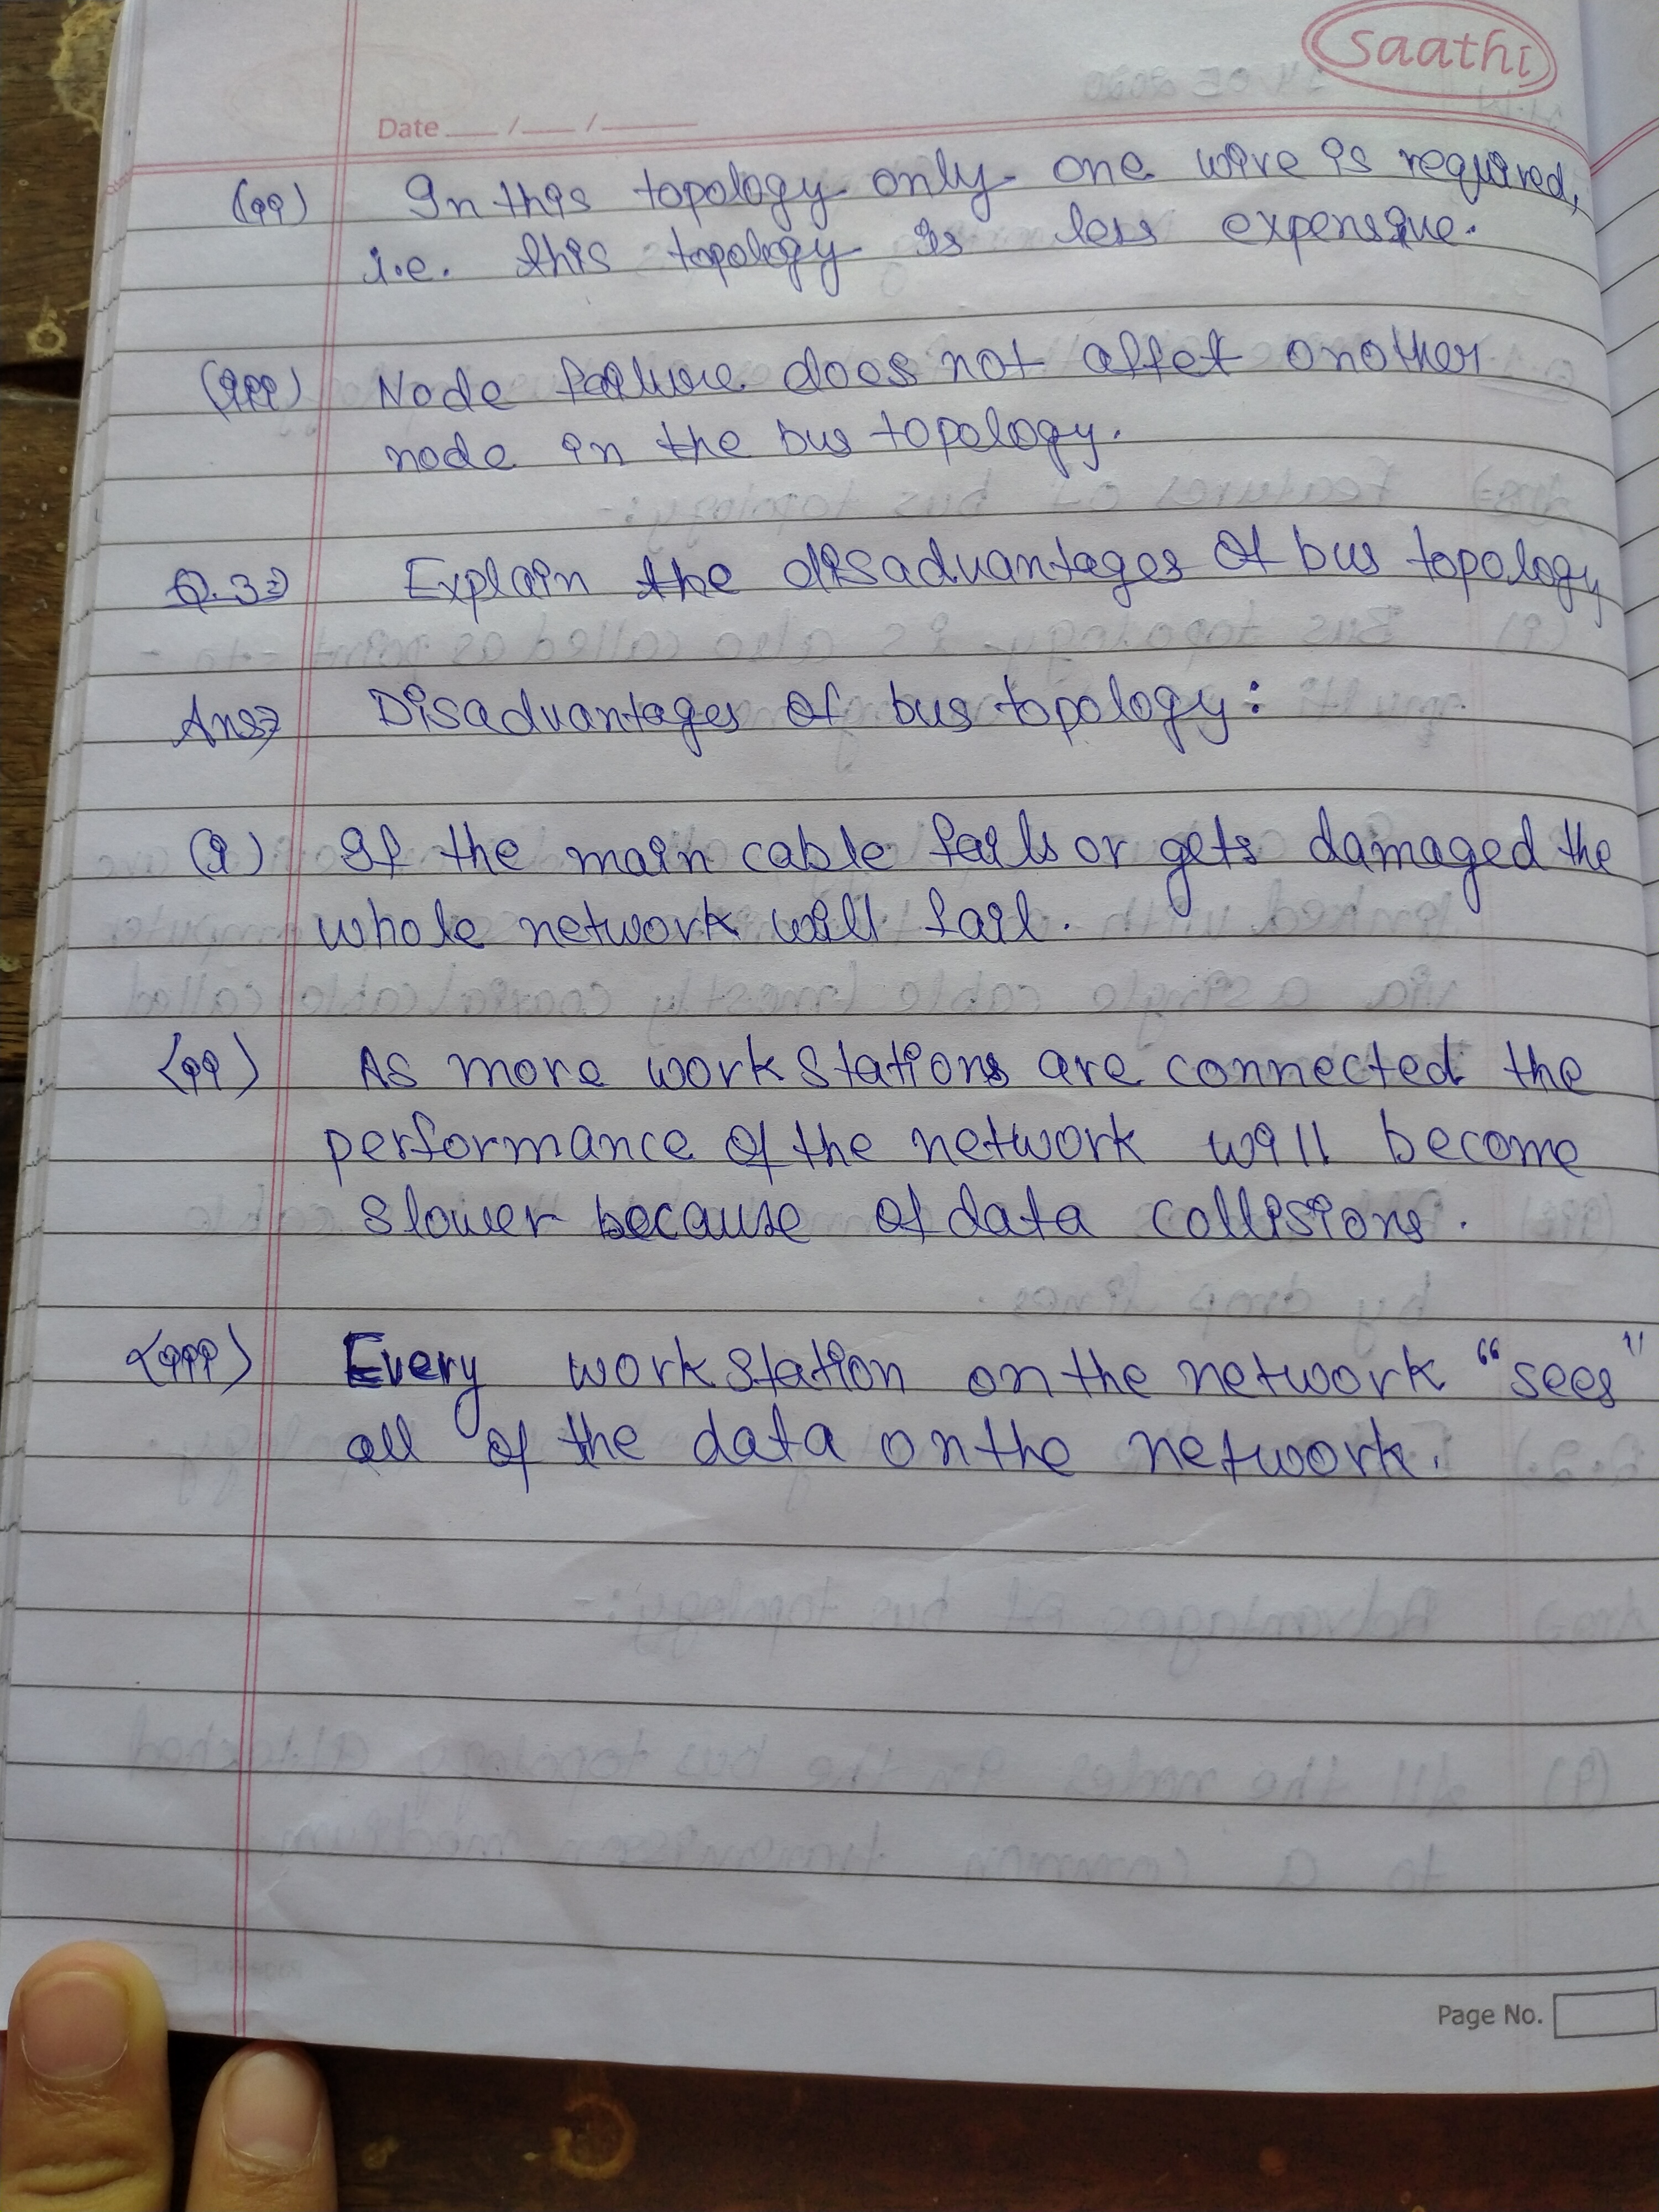 Saathi
Date ___/___/_____
(ii) In this topology only one wire is required,
i.e. this topology is less expensive.
(iii) Node failure does not affet onother
node in the bus topology.
Q.3⇒ Explain the disadvantages of bus topology
Ans⇒ Disadvantages of bus topology:
(i) If the main cable fails or gets damaged the
whole network will fail.
(ii) As more workstations are connected the
performance of the network will become
slower because of data collisions.
(iii) Every workstation on the network "sees"
all of the data on the network.
Page No.